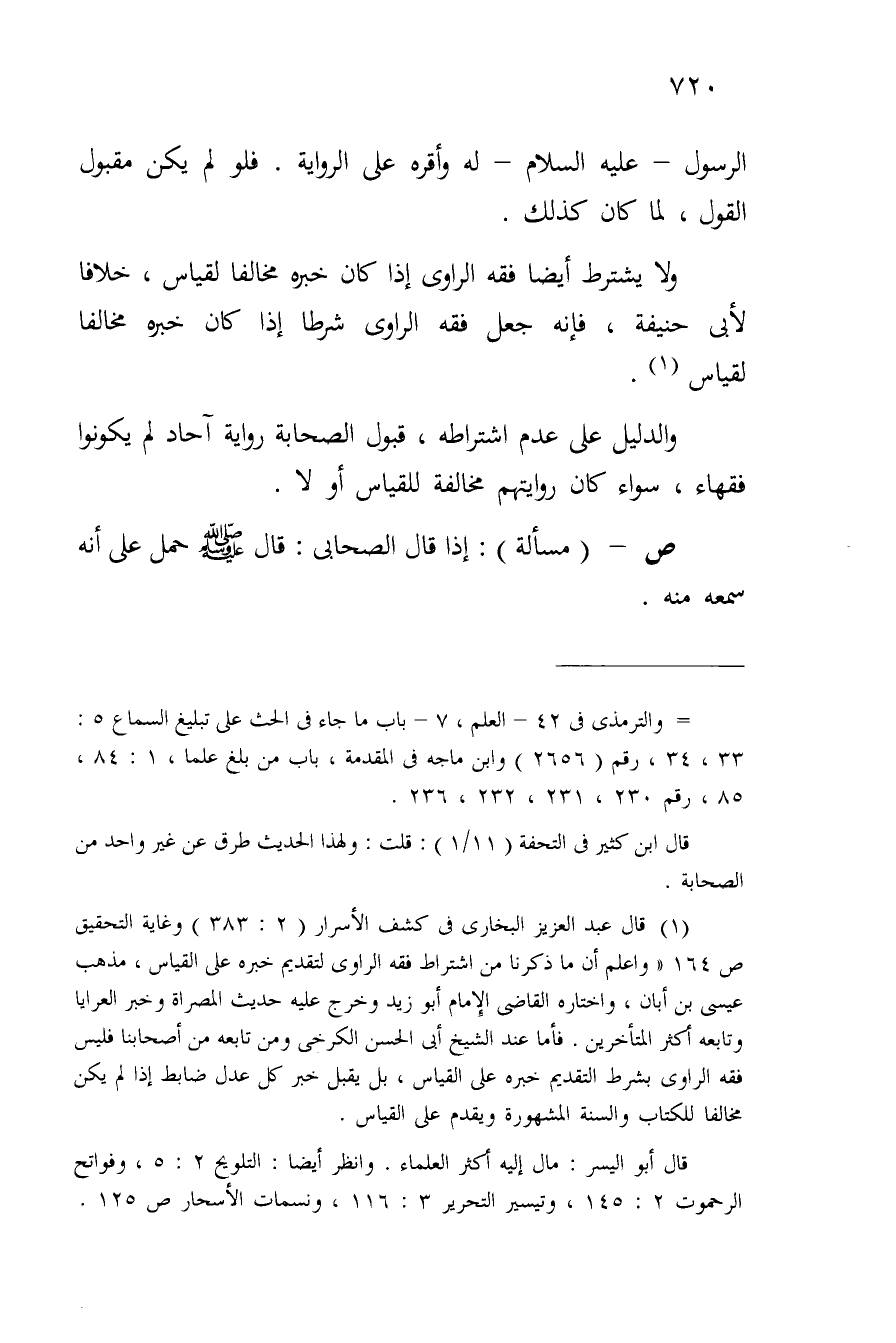 ٧٢٠
الرسول – عليه السلام – له وأقره على الرواية . فلو لم يكن مقبول
القول ، لما كان كذلك .
ولا يشترط أيضا فقه الراوى إذا كان خبره مخالفا لقياس ، خلافا
لأبى حنيفة ، فإنه جعل فقه الراوى شرطا إذا كان خبره مخالفا
لقياس (١) .
والدليل على عدم اشتراطه ، قبول الصحابة رواية آحاد لم يكونوا
فقهاء ، سواء كان روايتهم مخالفة للقياس أو لا .
ص – ( مسألة ) : إذا قال الصحابى : قال ﷺ حمل على أنه
سمعه منه .
= والترمذى فى ٤٢ – العلم ، ٧ – باب ما جاء فى الحث على تبليغ السماع ٥ :
٣٣ ، ٣٤ ، رقم ( ٢٦٥٦ ) وابن ماجه فى المقدمة ، باب من بلغ علما ، ١ : ٨٤ ،
٨٥ ، رقم ٢٣٠ ، ٢٣١ ، ٢٣٢ ، ٢٣٦ .
قال ابن كثير فى التحفة ( ١/١١ ) : قلت : ولهذا الحديث طرق عن غير واحد من
الصحابة .
(١) قال عبد العزيز البخارى فى كشف الأسرار ( ٢ : ٣٨٣ ) وغاية التحقيق
ص ١٦٤ « واعلم أن ما ذكرنا من اشتراط فقه الراوى لتقديم خبره على القياس ، مذهب
عيسى بن أبان ، واختاره القاضى الإمام أبو زيد وخرج عليه حديث المصراة وخبر العرايا
وتابعه أكثر المتأخرين . فأما عند الشيخ أبى الحسن الكرخى ومن تابعه من أصحابنا فليس
فقه الراوى بشرط التقديم خبره على القياس ، بل يقبل خبر كل عدل ضابط إذا لم يكن
مخالفا للكتاب والسنة المشهورة ويقدم على القياس .
قال أبو اليسر : مال إليه أكثر العلماء . وانظر أيضا : التلويح ٢ : ٥ ، وفواتح
الرحموت ٢ : ١٤٥ ، وتيسير التحرير ٣ : ١١٦ ، ونسمات الأسحار ص ١٢٥ .